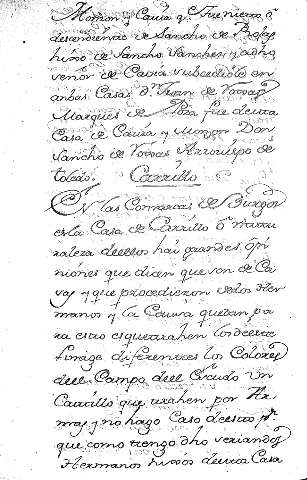 Monzon y Cavia q. Tuvieron o
descendiente de Sancho de Rojas
hixo de Sancho Sanchez y a dho
venor de Cavia subcedio en
anbas Casas dn Juan de Roxas
Marques de Poza fue de esta
Casa de Cavia y Monzon Don
Sancho de Roxas Arzobispo de
toledo. Carrillo
En las Comarcas de Burgos
es la Casa de Carrillo o natu
raleza de ellos hai grandes opi
niones que dizn que son de Ca
y que procedieron de dos Her
manos y la Causa que dan pa
ra esto es que trahen los de este
linage diferentes los Colores
del Campo del Escudo Un
Castillo que trahen por Ar
mas y no hago Caso de esto pr.
que como tengo dho veriandos
Hermanos hixos de una Casa